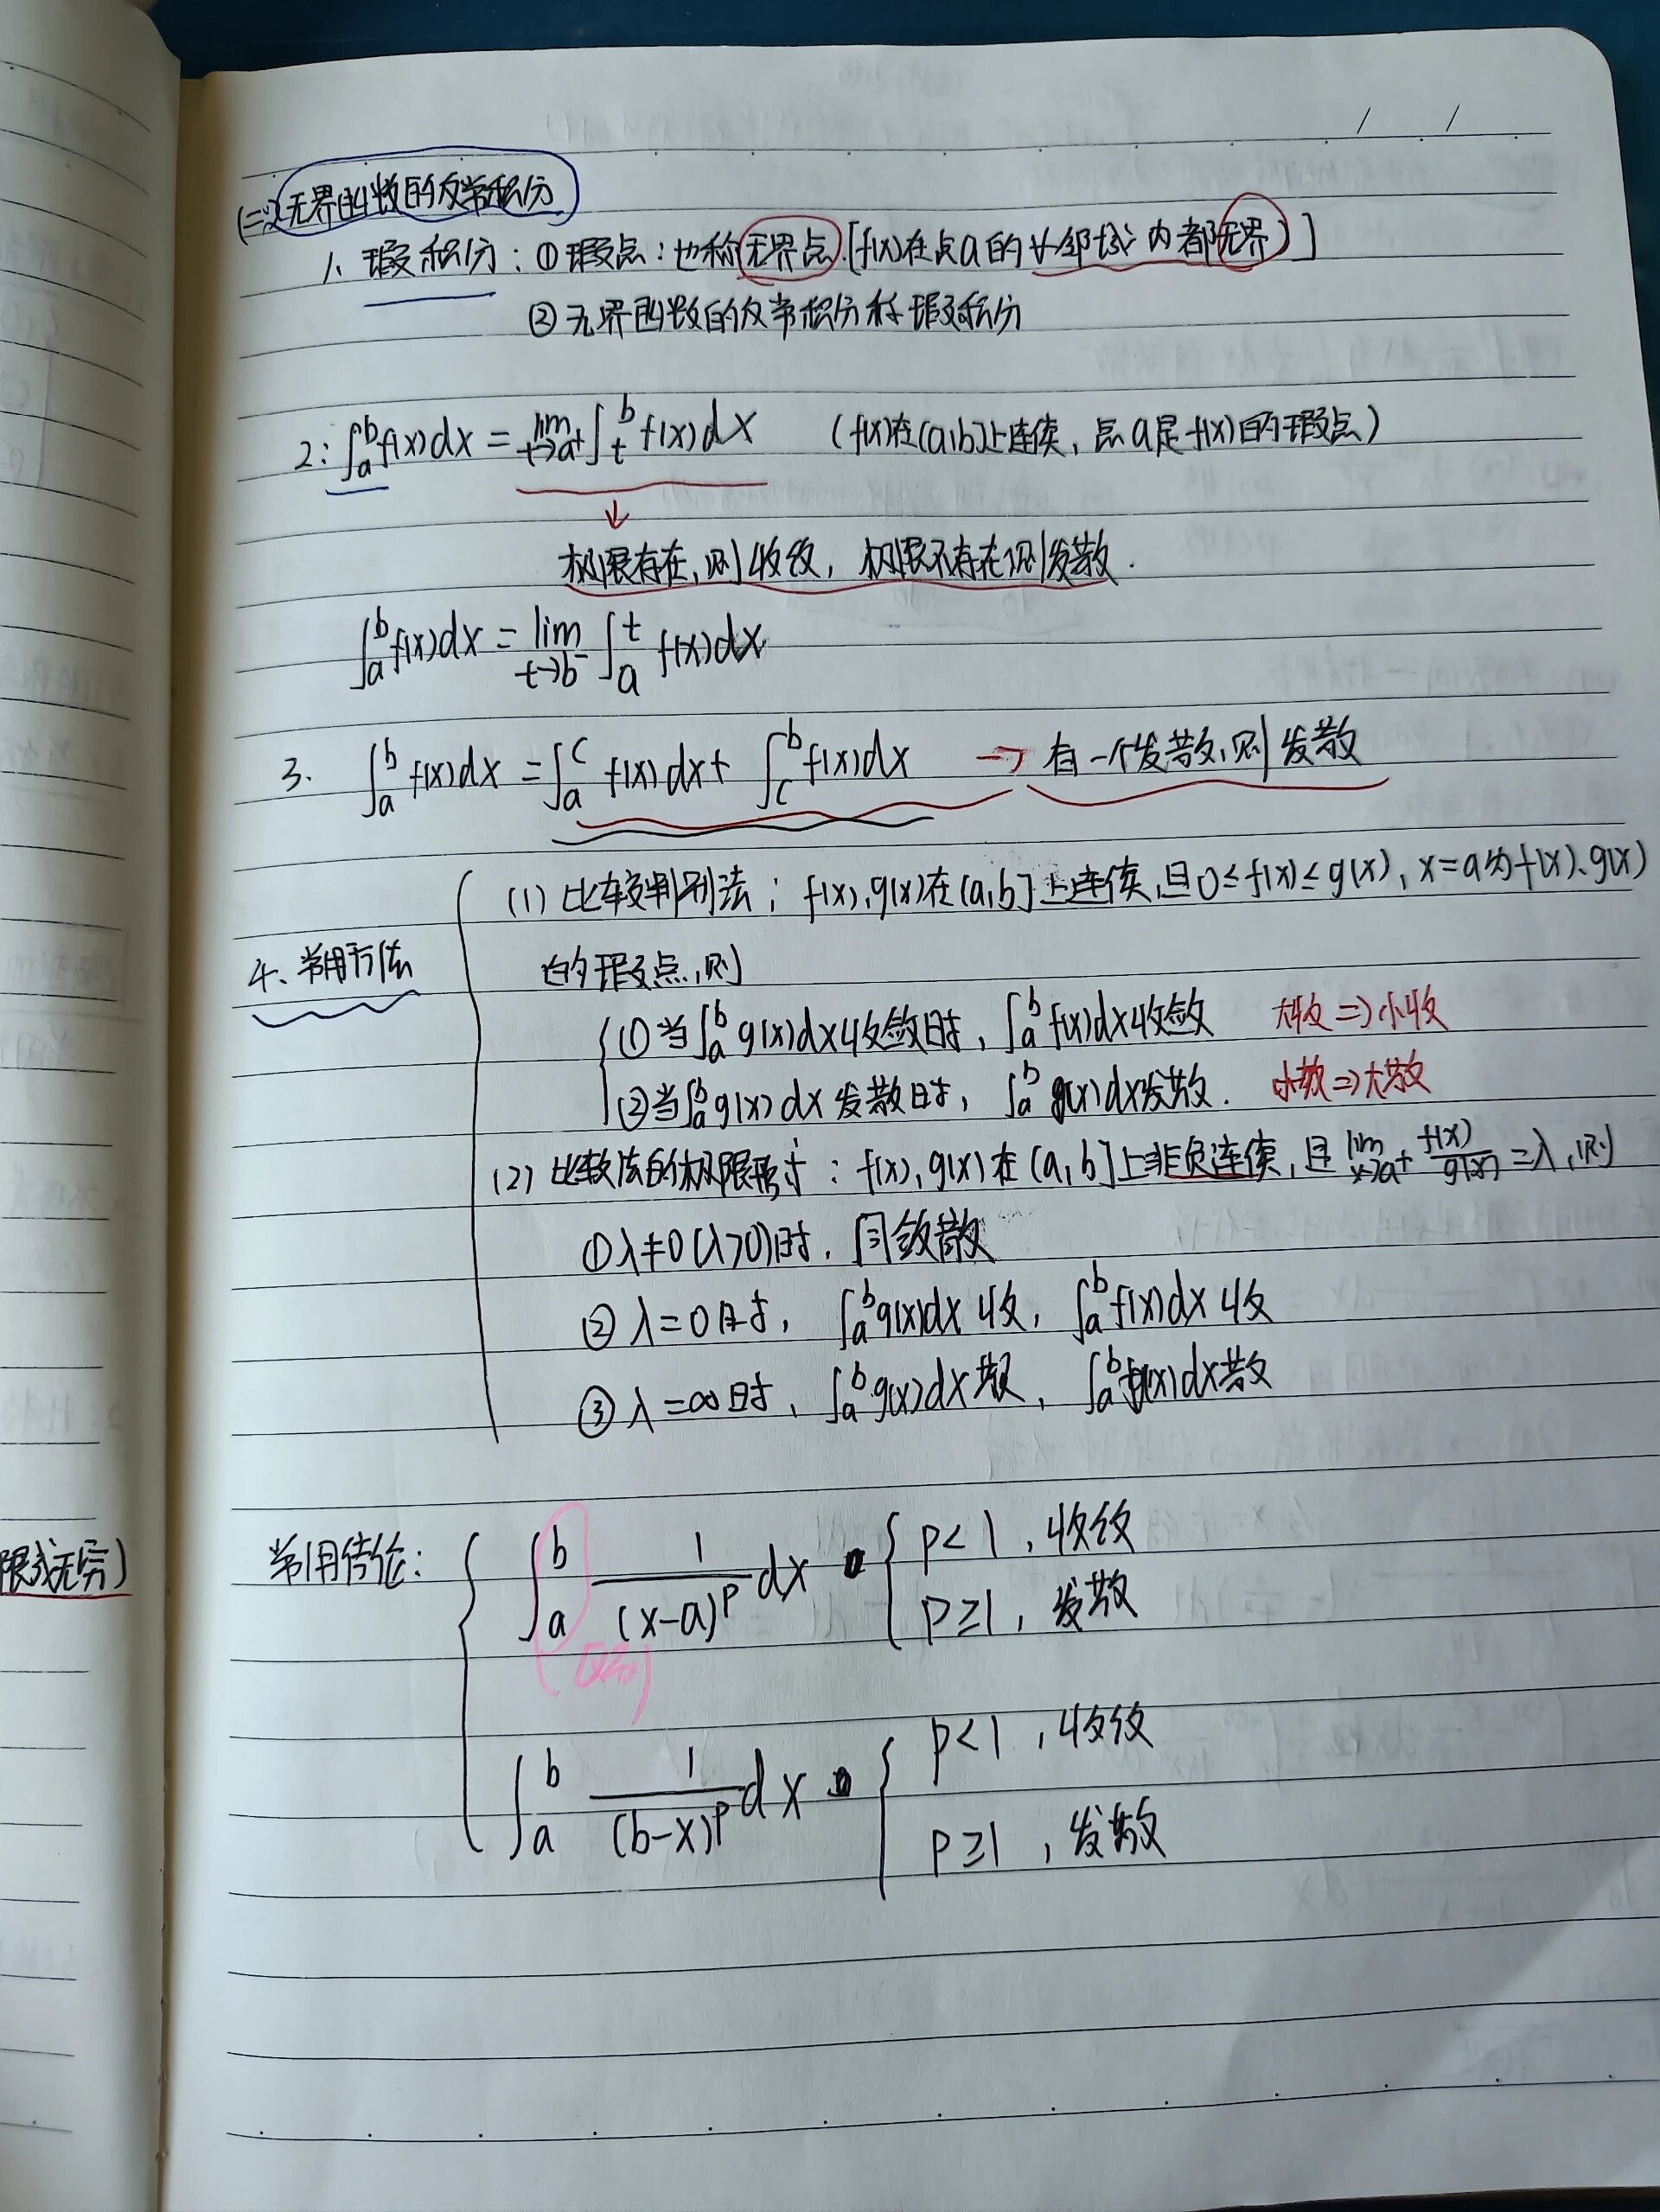 (二)无界函数的反常积分
1、瑕积分：①瑕点：也称无界点.[f(x)在点a的∀邻域内都无界)]
②无界函数的反常积分称瑕积分
2: ∫_a^b f(x)dx = lim_{t→a⁺} ∫_t^b f(x)dx (f(x)在(a,b]上连续，点a是f(x)的瑕点)
↓
极限存在，则收敛，极限不存在则发散.
∫_a^b f(x)dx = lim_{t→b⁻} ∫_a^t f(x)dx
3. ∫_a^b f(x)dx = ∫_a^c f(x)dx + ∫_c^b f(x)dx → 有一个发散，则发散
4、常用方法
(1) 比较判别法；f(x),g(x)在(a,b]上连续，且0≤f(x)≤g(x), x=a为f(x)、g(x)
的瑕点，则
①当∫_a^b g(x)dx收敛时，∫_a^b f(x)dx收敛 大收⇒小收
②当∫_a^b g(x)dx发散时，∫_a^b g(x)dx发散. 小散⇒大散
(2) 比较法的极限形式：f(x),g(x)在(a,b]上非负连续，且 lim_{x→a⁺} f(x)/g(x) = λ,则
①λ≠0(λ>0)时，同敛散
②λ=0时，∫_a^b g(x)dx 收，∫_a^b f(x)dx 收
③λ=∞时，∫_a^b g(x)dx散，∫_a^b f(x)dx散
限或无穷)
常用结论：
∫_a^b 1/(x-a)^p dx { p<1，收敛
p≥1，发散
∫_a^b 1/(b-x)^p dx { p<1，收敛
p≥1，发散